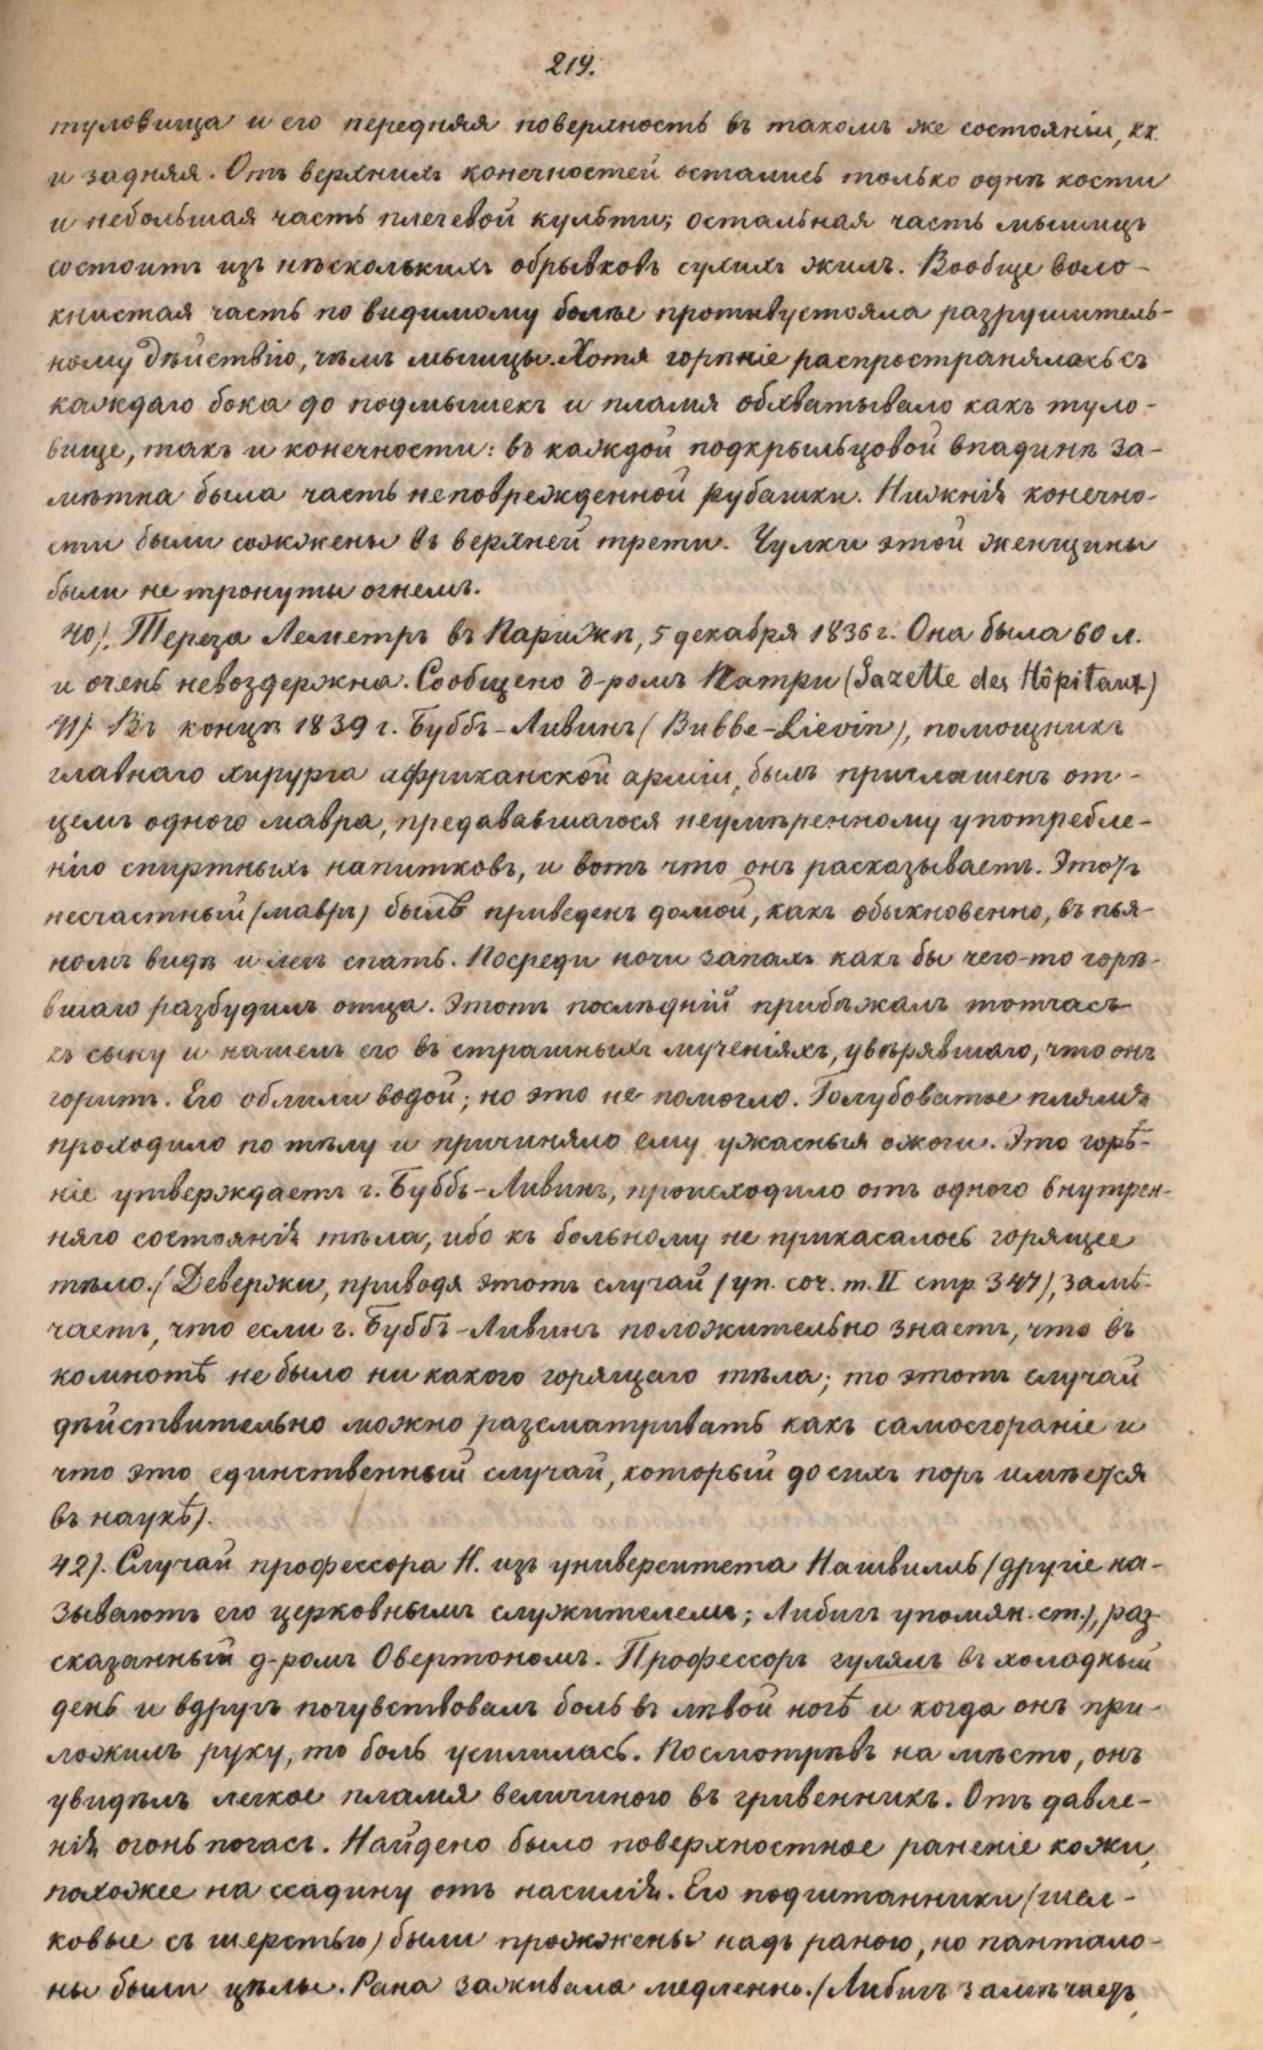 219.
туловища и его передняя поверхность въ такомъ же состояніи, кк.
и задняя. Отъ верхнихъ конечностей остались только однѣ кости
и небольшая часть плечевой культи; остальная часть мышицъ
состоитъ изъ нѣсколькихъ обрывковъ сухихъ жилъ. Вообще воло-
книстая часть по видимому болѣе противустояла разрушитель-
ному дѣйствію, чѣмъ мышцы. Хотя горѣніе распространялось съ
каждаго бока до подмышекъ и пламя обхватывало какъ туло-
вище, такъ и конечности: въ каждой подкрыльцовой впадинѣ за-
мѣтна была часть неповрежденной рубашки. Нижнія конечно-
сти были сожжены въ верхней трети. Чулки этой женщины
были не тронуты огнемъ.
40). Тереза Леметръ въ Парижѣ, 5 декабря 1836 г. Она была 60 л.
и очень невоздержна. Сообщено д-ромъ Патри (Gazette des Hôpitaux)
41). Въ концѣ 1839 г. Буббъ-Ливинъ (Bubbe-Lievin), помощникъ
главнаго хирурга африканской арміи, былъ приглашенъ от-
цемъ одного мавра, предававшагося неумѣренному употребле-
нію спиртныхъ напитковъ, и вотъ что онъ расказываетъ. Этотъ
несчастный (мавръ) былъ приведенъ домой, какъ обыкновенно, въ пья-
номъ видѣ и легъ спать. Посреди ночи запахъ какъ бы чего-то горѣ-
вшаго разбудилъ отца. Этотъ послѣдній прибѣжалъ тотчасъ
къ сыну и нашелъ его въ страшныхъ мученіяхъ, увѣрявшаго, что онъ
горитъ. Его облили водой; но это не помогло. Голубоватое пламя
проходило по тѣлу и причиняло ему ужасныя ожоги. Это горѣ-
ніе утверждаетъ г. Буббъ-Ливинъ, происходило отъ одного внутрен-
няго состоянія тѣла, ибо къ больному не прикасалось горящее
тѣло. (Девержи, приводя этотъ случай (уп. соч. т. II стр. 347), замѣ-
чаетъ, что если г. Буббъ-Ливинъ положительно знаетъ, что въ
комнотѣ не было ни какого горящаго тѣла; то этотъ случай
дѣйствительно можно разсматривать какъ самосгораніе и
что это единственный случай, который до сихъ поръ имѣется
въ наукѣ).
42). Случай профессора Н. изъ университета Нашвилль (другіе на-
зываютъ его церковнымъ служителемъ; Либигъ упомян. ст.), раз-
сказанный д-ромъ Овертономъ. Профессоръ гулялъ въ холодный
день и вдругъ почувствовалъ боль въ лѣвой ногѣ и когда онъ при-
ложилъ руку, то боль усилилась. Посмотрѣвъ на мѣсто, онъ
увидѣлъ легкое пламя величиною въ гривенникъ. Отъ давле-
нія огонь погасъ. Найдено было поверхностное раненіе кожи,
похожее на ссадину отъ насилія. Его подштанники (шел-
ковые съ шерстью) были прожжены надъ раною, но пантало-
ны были цѣлы. Рана заживала медленно. (Либигъ замѣчаетъ,